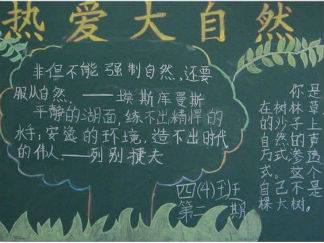 热爱大自然
非但不能强制自然，还要
服从自然。——埃斯库曼斯
平静的湖面，练不出精悍的
水手；安逸的环境，造不出时代
的伟人。——列别捷夫
四(4)班
第二期
你是
在树林草
的沙子上
自然的声
方式渗透
式。这个
自己不是
棵大树。